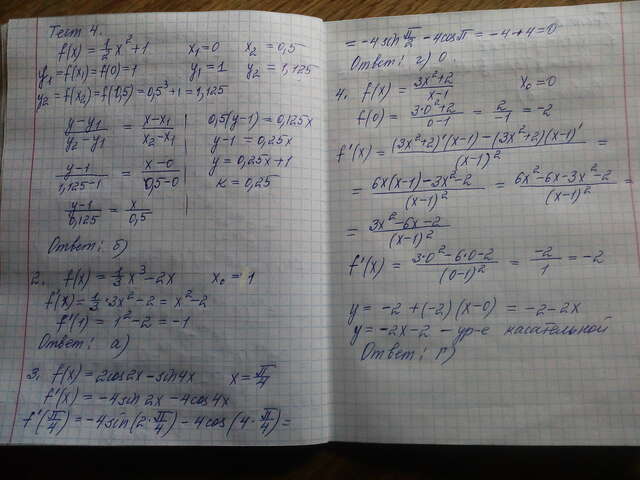 Тест 4.
f(x) = 1/2 x² + 1   x₁ = 0   x₂ = 0,5
y₁ = f(x₁) = f(0) = 1   y₁ = 1   y₂ = 1,125
y₂ = f(x₂) = f(0,5) = 0,5³ + 1 = 1,125
(y - y₁)/(y₂ - y₁) = (x - x₁)/(x₂ - x₁)   0,5(y - 1) = 0,125x
y - 1 = 0,25x
(y - 1)/(1,125 - 1) = (x - 0)/(0,5 - 0)   y = 0,25x + 1
к = 0,25
(y - 1)/0,125 = x/0,5
Ответ: б)
2. f(x) = 1/3 x³ - 2x   x₀ = 1
f'(x) = 1/3 · 3x² - 2 = x² - 2
f'(1) = 1² - 2 = -1
Ответ: а)
3. f(x) = 2cos2x - sin4x   x = π/4
f'(x) = -4sin2x - 4cos4x
f'(π/4) = -4sin(2·π/4) - 4cos(4·π/4) =
= -4sin π/2 - 4cosπ = -4 + 4 = 0
Ответ: г) 0.
4. f(x) = (3x² + 2)/(x - 1)   x₀ = 0
f(0) = (3·0² + 2)/(0 - 1) = 2/-1 = -2
f'(x) = ((3x² + 2)'(x - 1) - (3x² + 2)(x - 1)')/(x - 1)² =
= (6x(x - 1) - 3x² - 2)/(x - 1)² = (6x² - 6x - 3x² - 2)/(x - 1)² =
= (3x² - 6x - 2)/(x - 1)²
f'(x) = (3·0² - 6·0 - 2)/(0 - 1)² = -2/1 = -2
y = -2 + (-2)(x - 0) = -2 - 2x
y = -2x - 2 - ур-е касательной
Ответ: г)